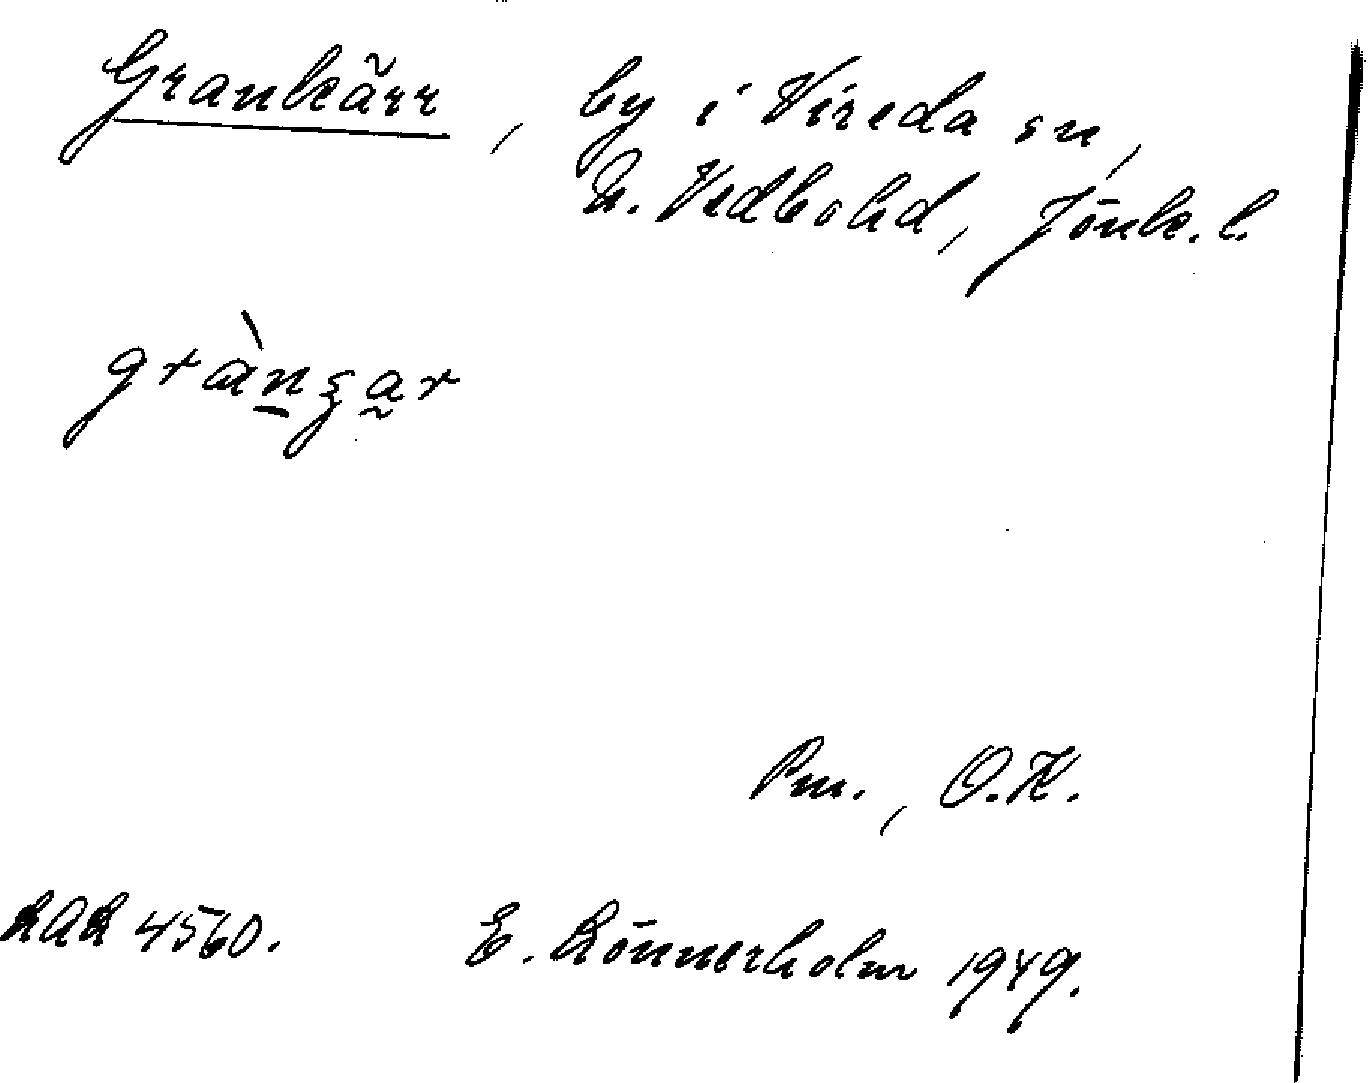 Grankärr, by i Vireda sn,
N. Vedbohd, Jönk. l.
Pm., O.K.
4560. E. Rönnerholm 1949.